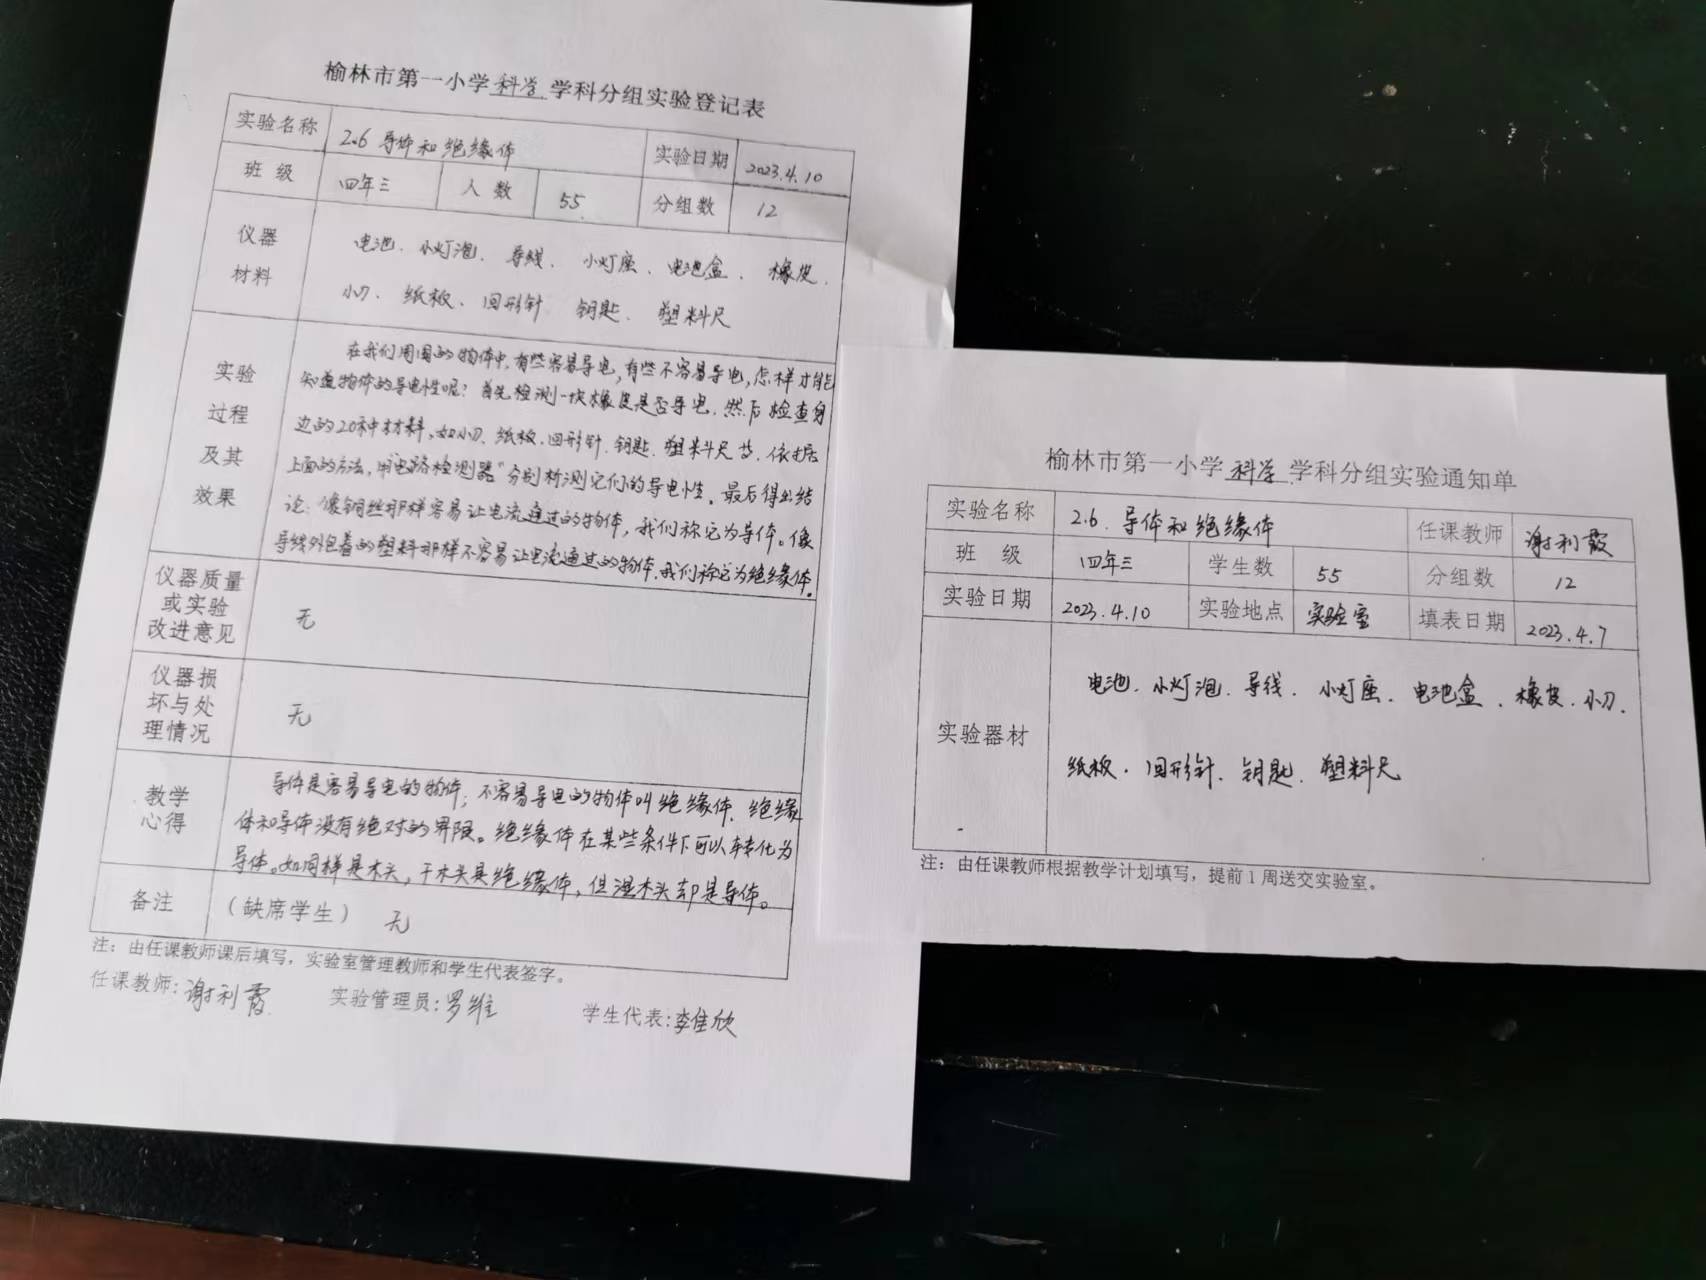 榆林市第一小学 科学 学科分组实验登记表
实验名称 2.6 导体和绝缘体 实验日期 2023.4.10
班 级 四年三 人 数 55 分组数 12
仪器
材料
电池、小灯泡、导线、小灯座、电池盒、橡皮、
小刀、纸板、回形针、钥匙、塑料尺
实验
过程
及其
效果
在我们周围的物体中,有些容易导电,有些不容易导电,怎样才能
知道物体的导电性呢?首先检测一块橡皮是否导电,然后检查身
边的20种材料,如小刀、纸板、回形针、钥匙、塑料尺等,依据
上面的方法,用"电路检测器"分别析测它们的导电性。最后得出结
论:像铜丝那样容易让电流通过的物体,我们称它为导体。像
导线外包着的塑料那样不容易让电流通过的物体,我们称它为绝缘体。
仪器质量
或实验
改进意见
无
仪器损
坏与处
理情况
无
教学
心得
导体是容易导电的物体;不容易导电的物体叫绝缘体、绝缘
体和导体没有绝对的界限。绝缘体在某些条件下可以转化为
导体。如同样是木头,干木头是绝缘体,但湿木头却是导体。
备注 (缺席学生) 无
注:由任课教师课后填写,实验室管理教师和学生代表签字。
任课教师:谢利霞 实验管理员:罗维 学生代表:李佳欣
榆林市第一小学 科学 学科分组实验通知单
实验名称 2.6、导体和绝缘体 任课教师 谢利霞
班 级 四年三 学生数 55 分组数 12
实验日期 2023.4.10 实验地点 实验室 填表日期 2023.4.7
实验器材
电池、小灯泡、导线、小灯座、电池盒、橡皮、小刀、
纸板、回形针、钥匙、塑料尺
注:由任课教师根据教学计划填写,提前1周送交实验室。